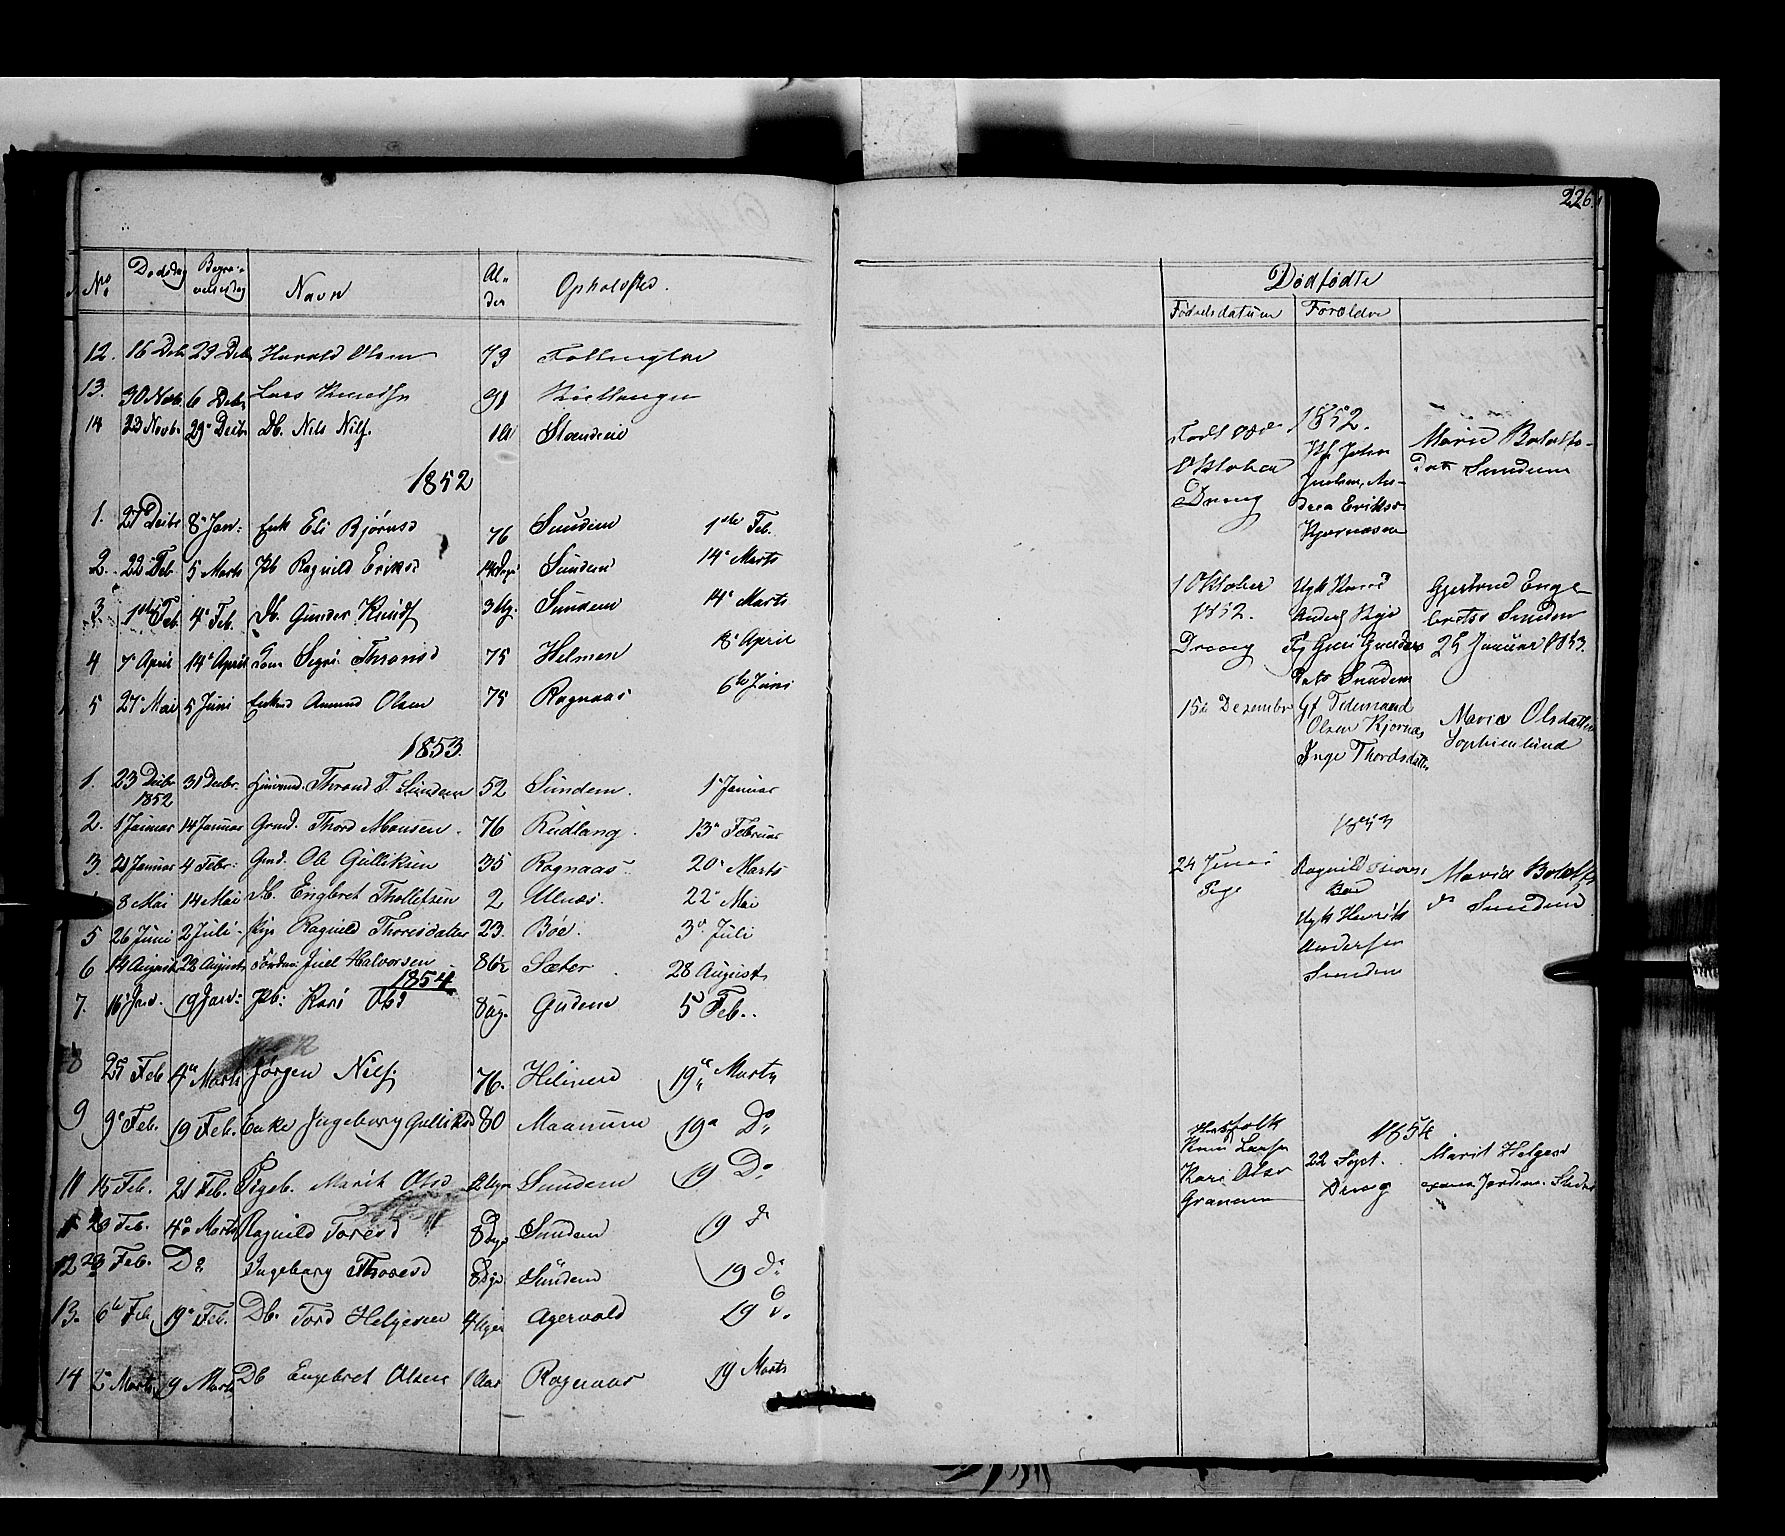 226.
No. Dødsdag Begravelsesdag Navn Alder Opholdsted.
12. 16 Deb 29 Deb Harald Olsen 79
13. 30 Novb. 6 Debr Lars Knuds. 91
14 22 Novb. 29 Decbr Db. Nils Nils.
1852
1. 27 Decbr 8 Jan: Enk Eli Bjørnsd 76 Sundem 1ste Feb.
2. 22 Feb. 5 Marts Pb Ragnild Eriksd Sundem 14 Marts
3 1ste Feb 4 Feb. Db. Gunder Knuds Sundem 14 Marts
4 7 April 14 April Kone Sigri Thronsd 75 Helmen 18 April
5 27 Mai 5 Juni Enkmd Amund Olsen 75 Ragnaas 6te Juni
1853.
1. 23 Decbr 1852 31 Decbr. Thrond T. Sundem 52 Sundem. 1 Januar
2. 1 Januar 14 Januar Grmd. Thord Monsen. 76 Rudlang. 13 Februar
3. 21 Januar 4 Febr: Gmd. Ole Gulliksen 35 Ragnaas. 20 Marts
8 Mai 14 Mai Db. Engbret Thollefsen 2 Ulnæs. 22 Mai
5 26 Juni 2 Juli Pige Ragnild Thoresdatter 23. Bøe. 3 Juli
6 14 August 22 August Juel Halvorsen 86½ Sæter. 28 August
1854
7. 16 Jan. 19 Jan: Pb: Kari Olsd 8 Ug. Gudem 5 Feb.
8 25 Feb 4 Marts Jørgen Nils. 76. 19 Marts
9 9 Feb. 19 Feb. Enke Ingeborg Gulliksd 80 Maanum 19 Do
11 15 Feb. 21 Feb. Pigeb. Marit Olsd Sundem 19 Do
23 Feb. 4 Marts Ragnild Toresd 8 Dge Sundem 19 d
12 23 Feb. Do Ingeborg Thoresd 8 Dge Sundem 19 d
13. 6te Feb 19 Feb. Db. Tord Helgesen 4 Uger Agervold 19 d.
14 2 Marts 19 Marts Db Engebret Olsen 1 Aar Ragnaas 19 Marts
Dødfødte
Fødselsdatum Forældre
1852.
Oktober
Dreng
Hf John
Juelsen, An-
drea Eriksd
Kjørnaasen
Marie Botolfs-
Datr Sundem
1 Oktober
1852.
Dreng
Anders
Guri Gunders
Datr Sundem
Gjertrud Enge
brets Sundem
25 Januar 1853.
15de Dezember
Gf Tidemand
Olsen Kjørnæs
Inge Thordsdatter
Maria Olsdatter
Sophienlund
1853
24 Juni
Pige
Ragnild
Bøe
Ugk Henrik
Andersen
Sundem
Maria Botolfs
d Sundem
1854
Husfolk
Kari Olsd
22 Sept.
Dreng
Marit Helgesd